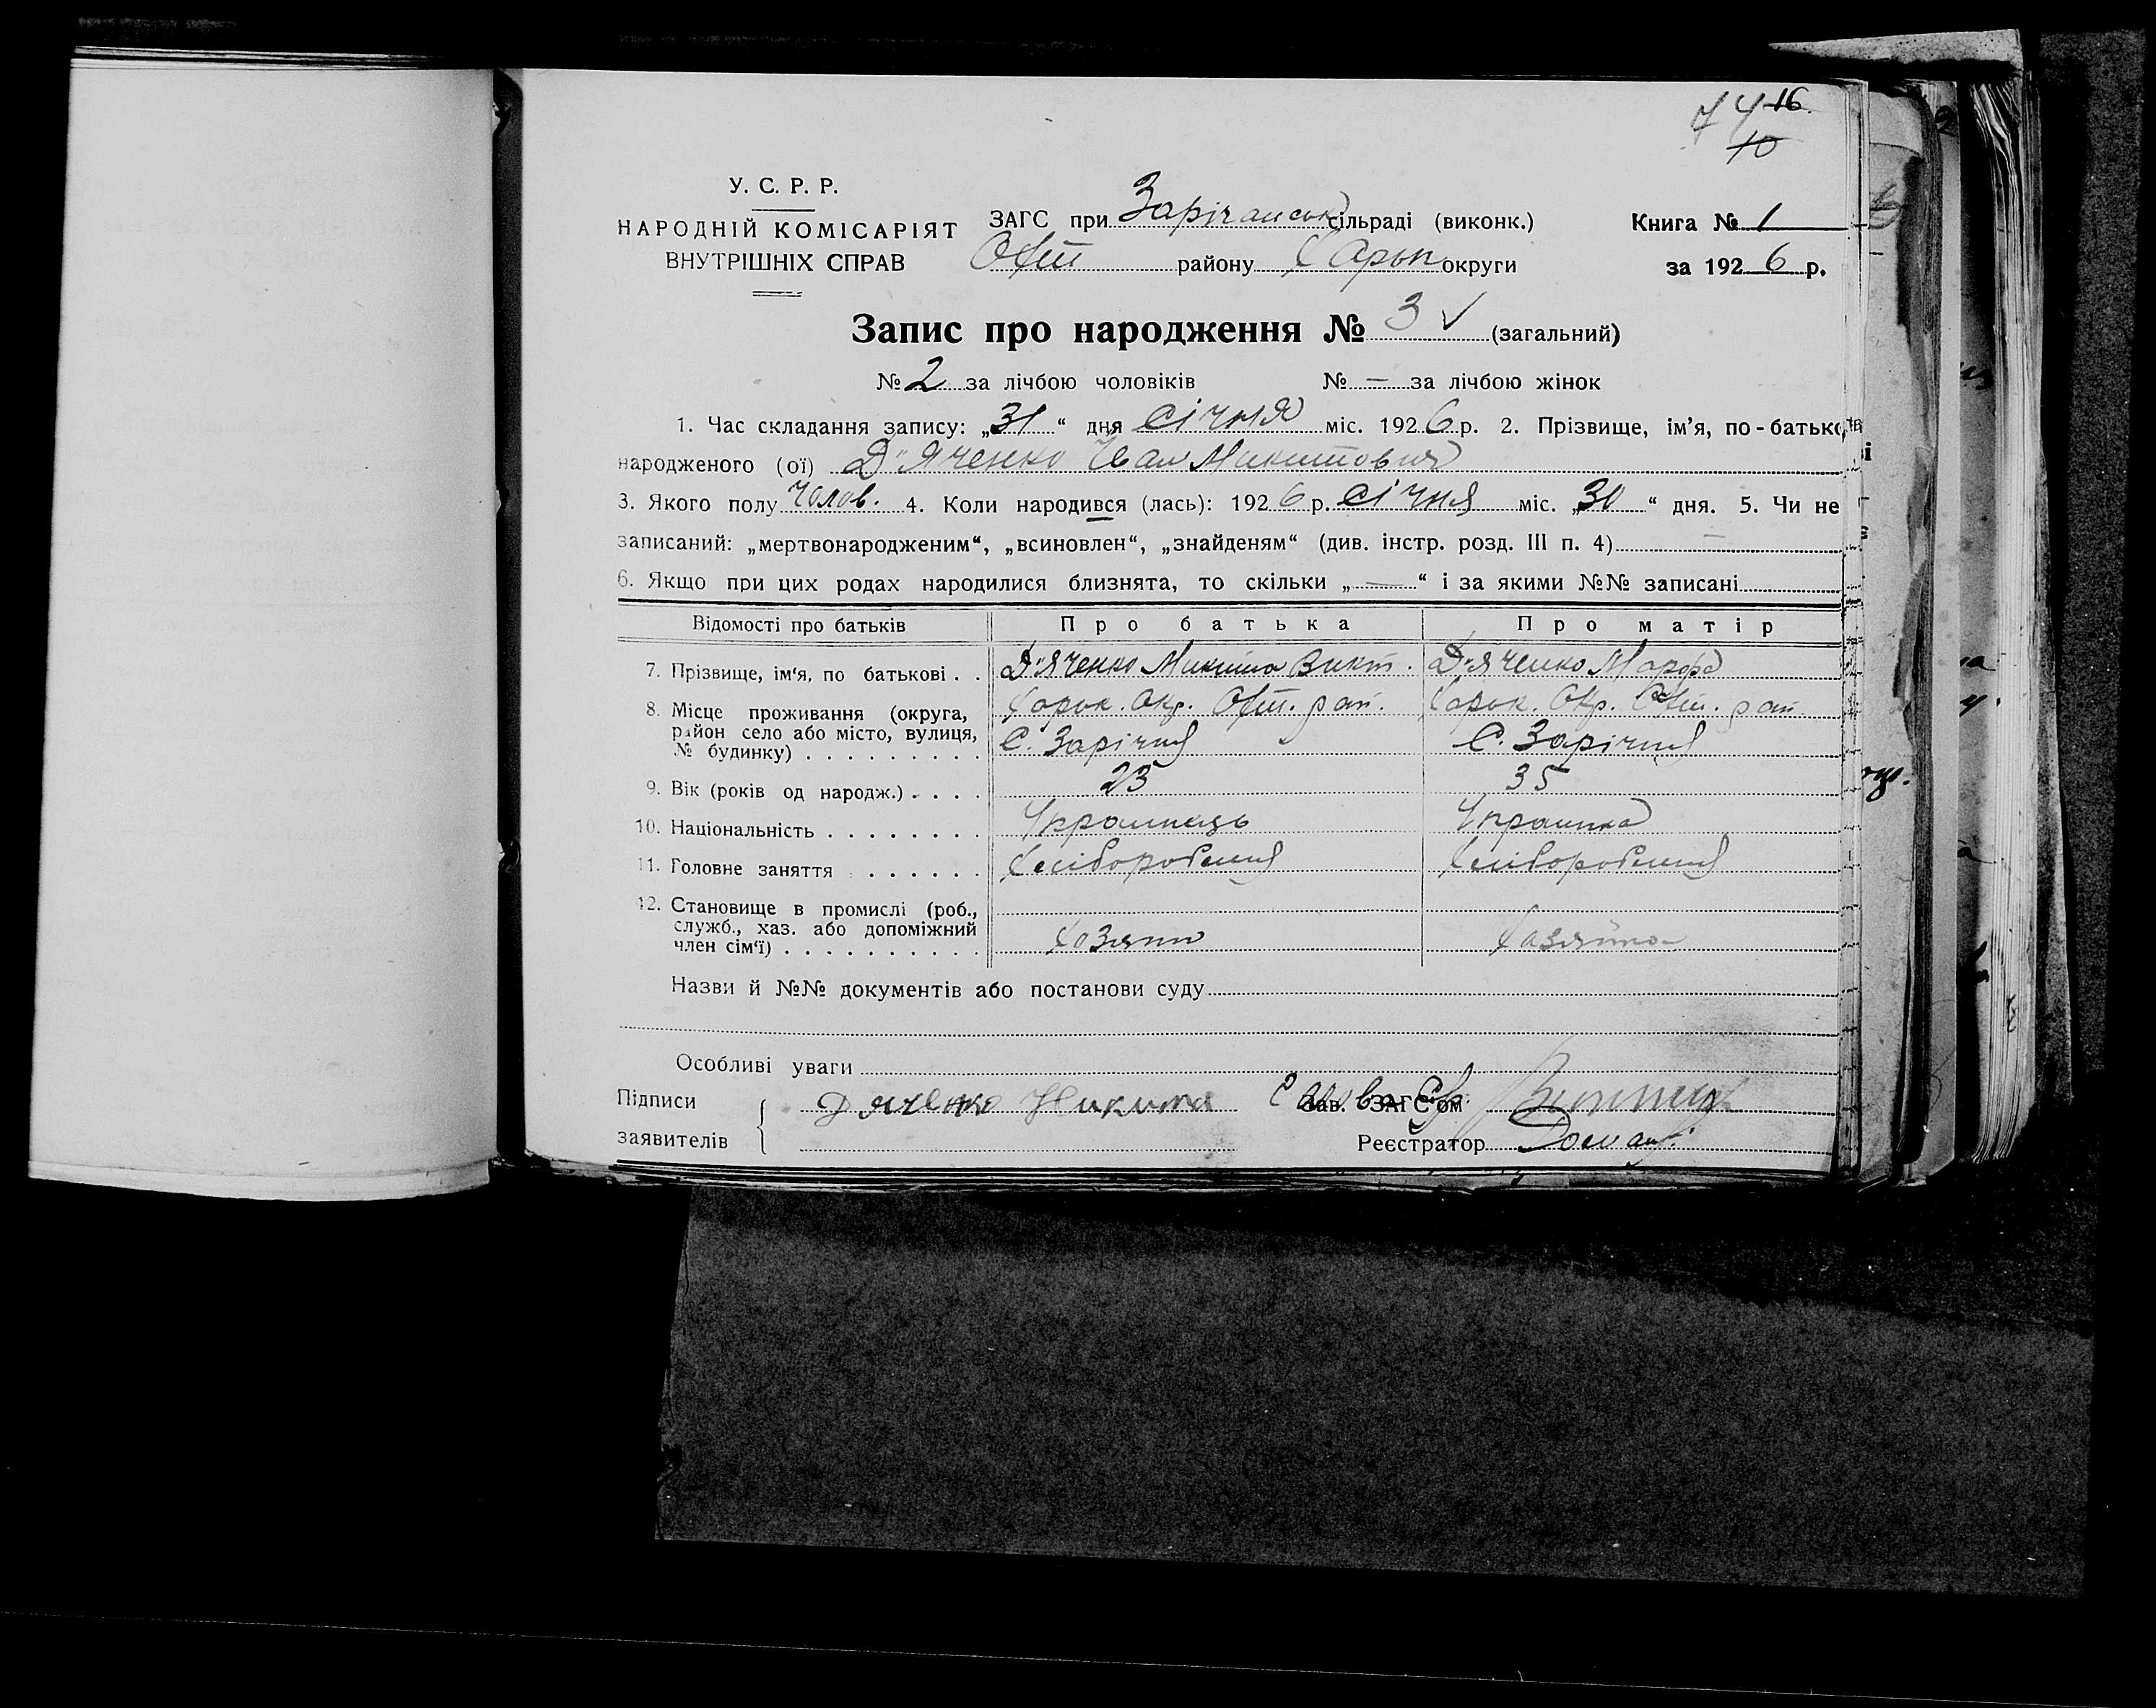 74 16.
10
У. С. Р. Р.
НАРОДНІЙ КОМІСАРІЯТ
ВНУТРІШНІХ СПРАВ
ЗАГС при Зарічанськ сільраді (виконк.)
Охт району Харьк округи
Книга № 1
за 1926 р.
Запис про народження № 3 ✓ (загальний)
№ 2 за лічбою чоловіків № — за лічбою жінок
1. Час складання запису: „31“ дня січня міс. 1926 р. 2. Прізвище, ім’я, по-батьков
народженого (ої) Д"яченко Іван Микитович
3. Якого полу чолов. 4. Коли народився (лась): 1926 р. січня міс. „30“ дня. 5. Чи не
записаний: „мертвонародженим“, „всиновлен“, „знайденям“ (див. інстр. розд. III п. 4) —
6. Якщо при цих родах народилися близнята, то скільки „—“ і за якими №№ записані
Відомості про батьків Про батька Про матір
7. Прізвище, ім‘я, по батькові . . Д"яченко Микита Викт. Д"яченко Марфа
8. Місце проживання (округа, район село або місто, вулиця, № будинку) Харьк. Окр. Охт. рай. Харьк. Окр. Охт. рай.
С. Зарічня С. Зарічня
9. Вік (років од народж.) . . . . 23 35
10. Національність . . . . . . . . Українець Українка
11. Головне заняття . . . . . . Хліборобсний Хліборобсний
12. Становище в промислі (роб.,
служб., хаз. або допоміжний
член сім‘ї) . . . . . . . . . . Хозяин Хазяйка
Назви й №№ документів або постанови суду
Особливі уваги
Підписи Дяченко Никита Голова С/р. Зав. ЗАГС‘ом
заявителів Реєстратор